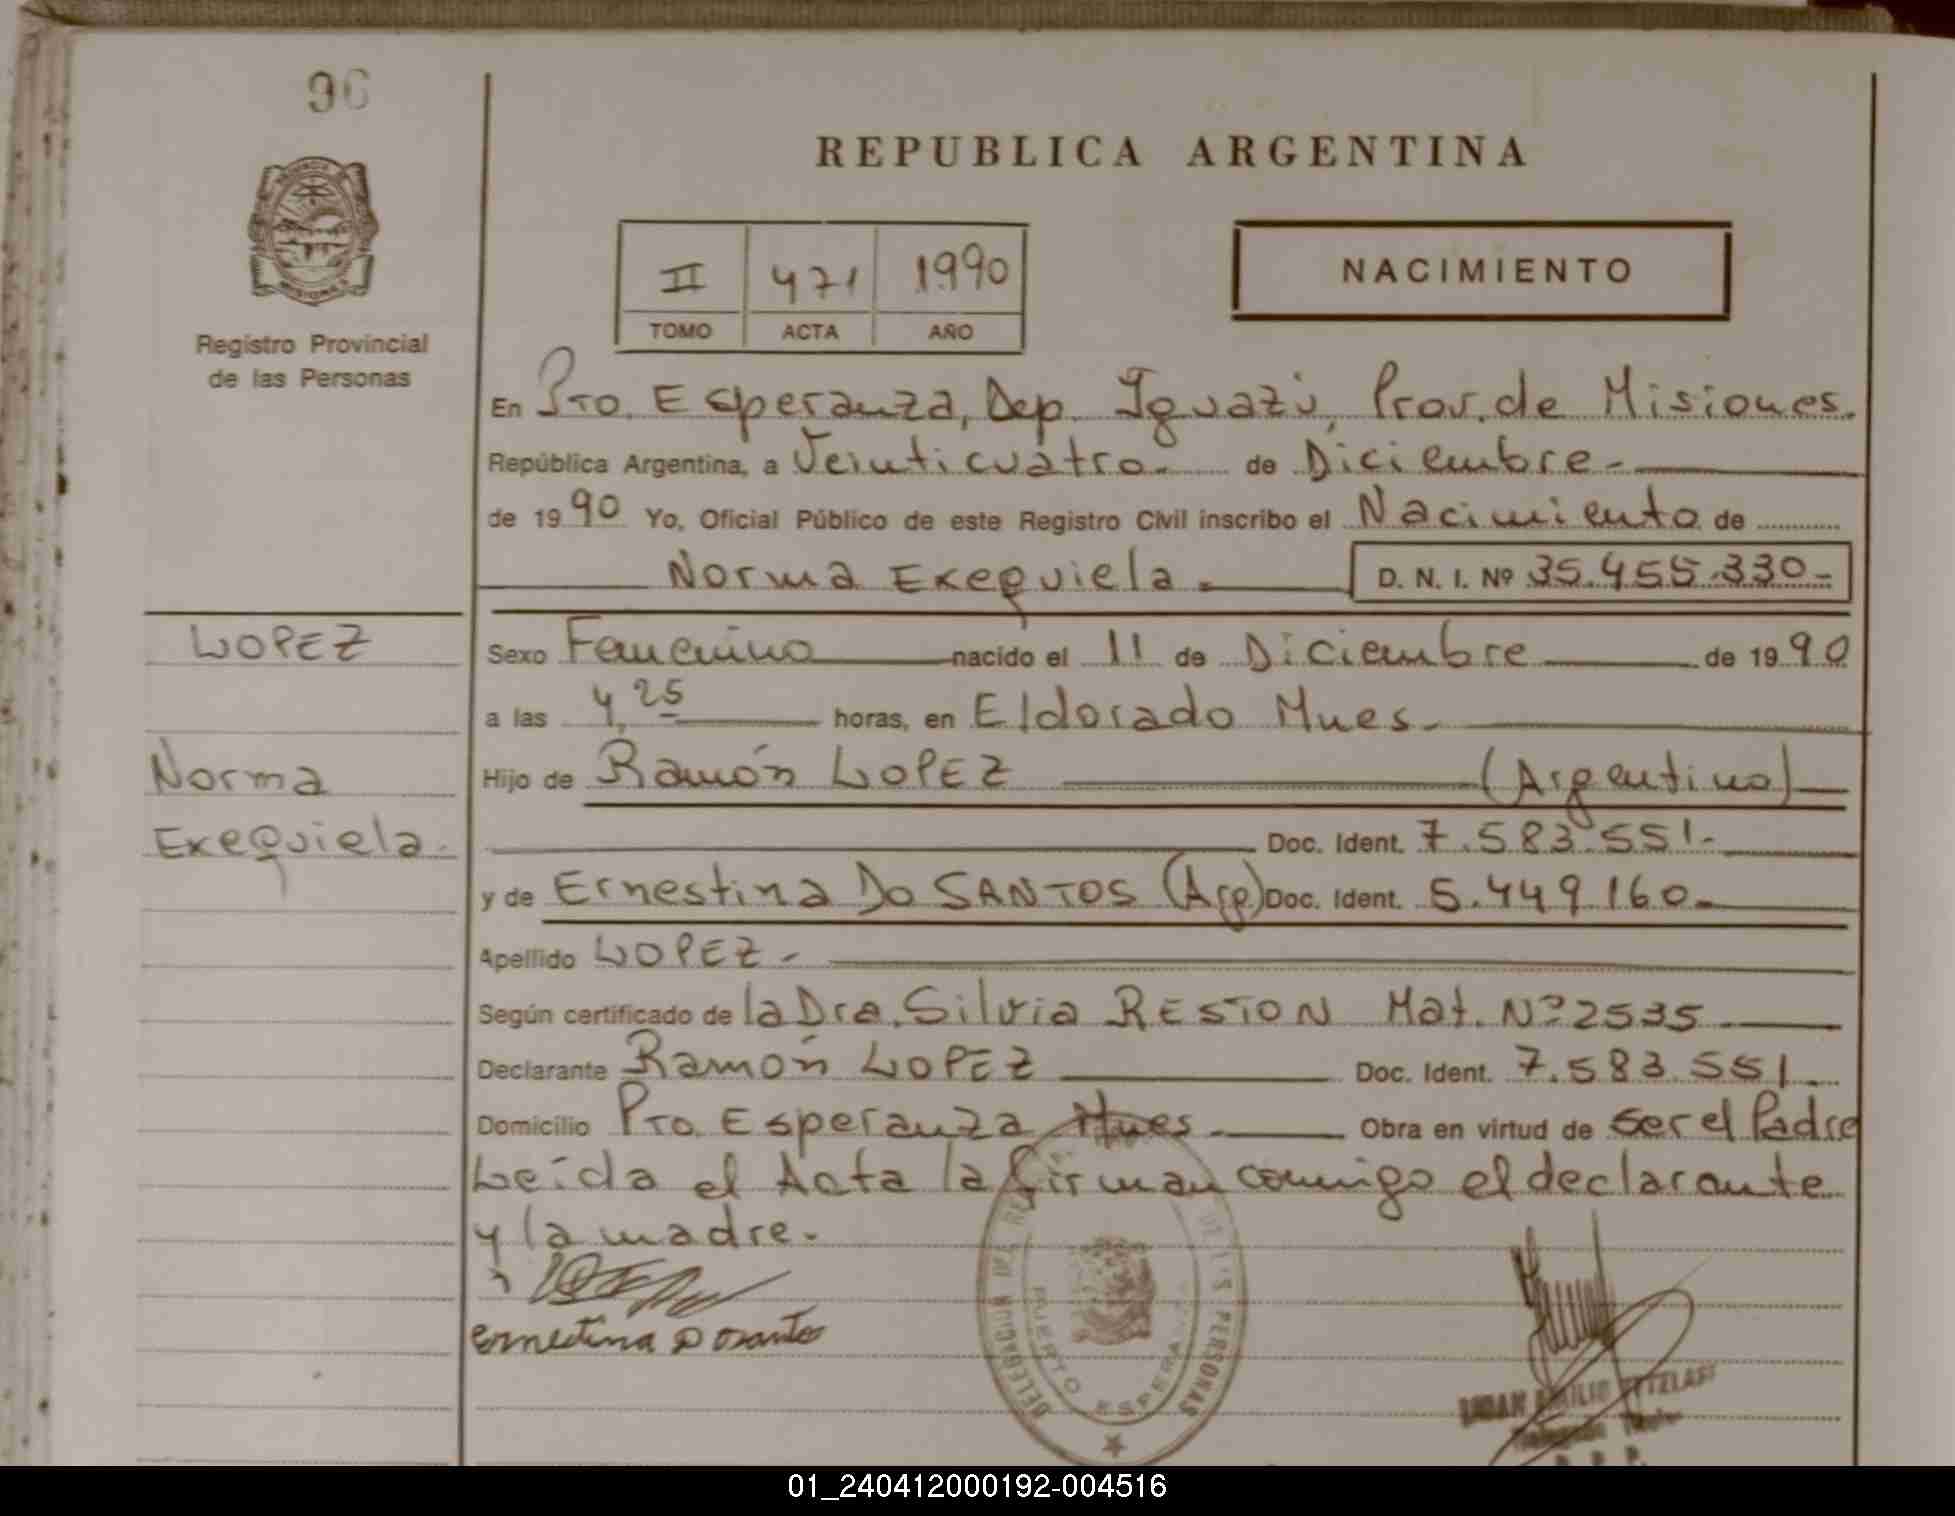 96
REPUBLICA ARGENTINA
II 471 1990
TOMO ACTA AÑO
NACIMIENTO
MISIONES
Registro Provincial
de las Personas
En Pto. Esperanza, Dep. Iguazú, Prov. de Misiones.
República Argentina, a Veinticuatro.- de Diciembre.-
de 1990 Yo, Oficial Público de este Registro Civil inscribo el Nacimiento de
Norma Exequiela.- D. N. I. Nº 35.455.330.-
LOPEZ
Norma
Exequiela.
Sexo Femenino nacido el 11 de Diciembre de 1990
a las 4,25 horas, en Eldorado Mnes.-
Hijo de Ramón LOPEZ (Argentino)
Doc. Ident. 7.583.551.-
y de Ernestina DO SANTOS (Arg.) Doc. Ident. 5.449.160.-
Apellido LOPEZ.-
Según certificado de la Dra. Silvia RESTON Mat. Nº 2535
Declarante Ramón LOPEZ Doc. Ident. 7.583.551.
Domicilio Pto. Esperanza Mnes.- Obra en virtud de ser el Padre
Leída el Acta la firman conmigo el declarante
y la madre.-
Ernestina Dosanto
DE LAS PERSONAS
PUERTO
01_240412000192-004516